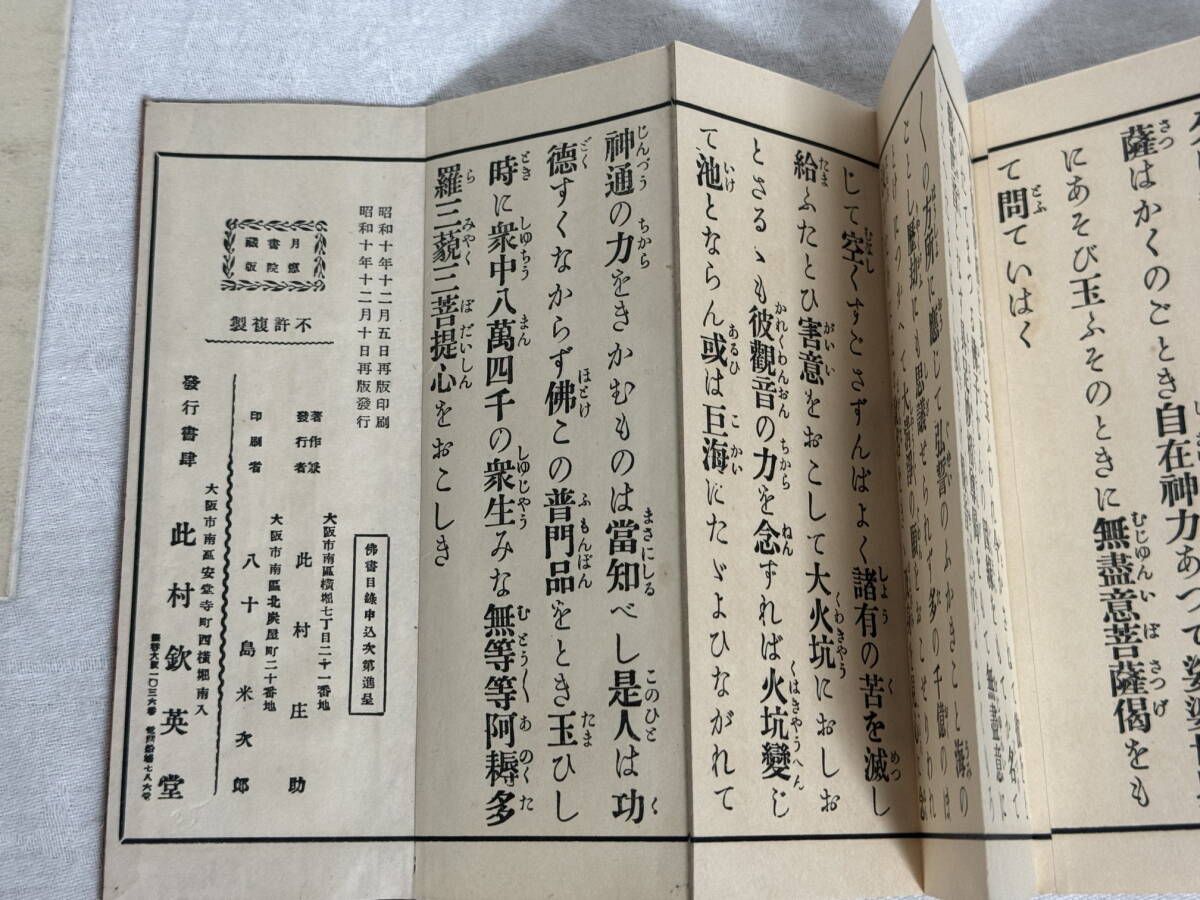 薩はかくのごとき自在神力あつて娑婆世
にあそび玉ふそのときに無盡意菩薩偈をも
て問ていはく
じて空くすこさずんばよく諸有の苦を滅し
給ふたとひ害意をおこして大火坑におしお
とさるゝも彼觀音の力を念ずれば火坑變じ
て池とならん或は巨海にたゞよひながれて
神通の力をきかむものは當知べし是人は功
德すくなからず佛この普門品をとき玉ひし
時に衆中八萬四千の衆生みな無等等阿耨多
羅三藐三菩提心をおこしき
昭和十年十二月五日再版印刷
昭和十年十二月十日再版發行
月
書院
藏版
不許複製
佛書目錄申込次第進呈
大阪市南區橫堀七丁目二十一番地
著作兼發行者 此村庄助
大阪市南區北炭屋町二十番地
印刷者 八十島米次郎
大阪市南區安堂寺町西橫堀南入
發行書肆 此村欽英堂